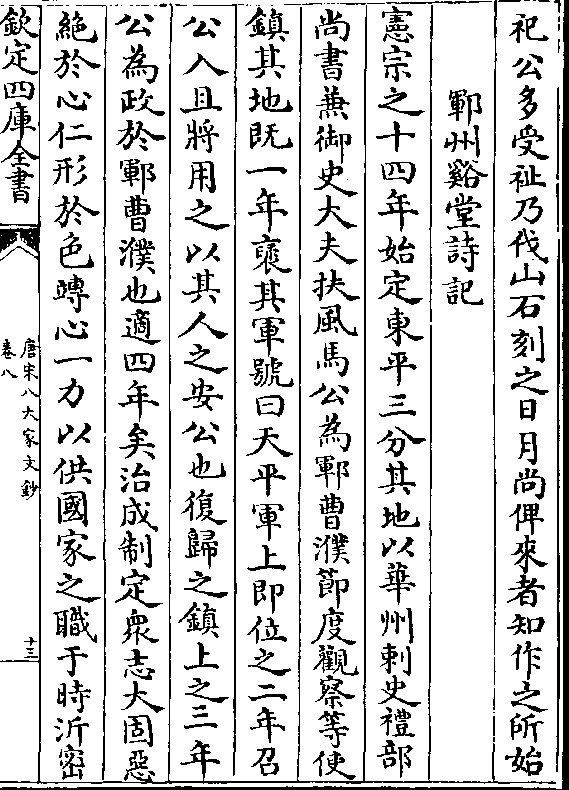 祀公多受祉乃伐山石刻之日月尚俾來者知作之所始
鄆州谿堂詩記
憲宗之十四年始定東平三分其地以華州刺史禮部
尚書兼御史大夫扶風馬公為鄆曹濮節度觀察等使
鎮其地既一年襃其軍號曰天平軍上即位之二年召
公入且將用之以其人之安公也復歸之鎮上之三年
公為政於鄆曹濮也適四年矣治成制定衆志大固惡
絶於心仁形於色竱心一力以供國家之職于時沂密
欽定四庫全書
唐宋八大家文鈔
卷八
十三